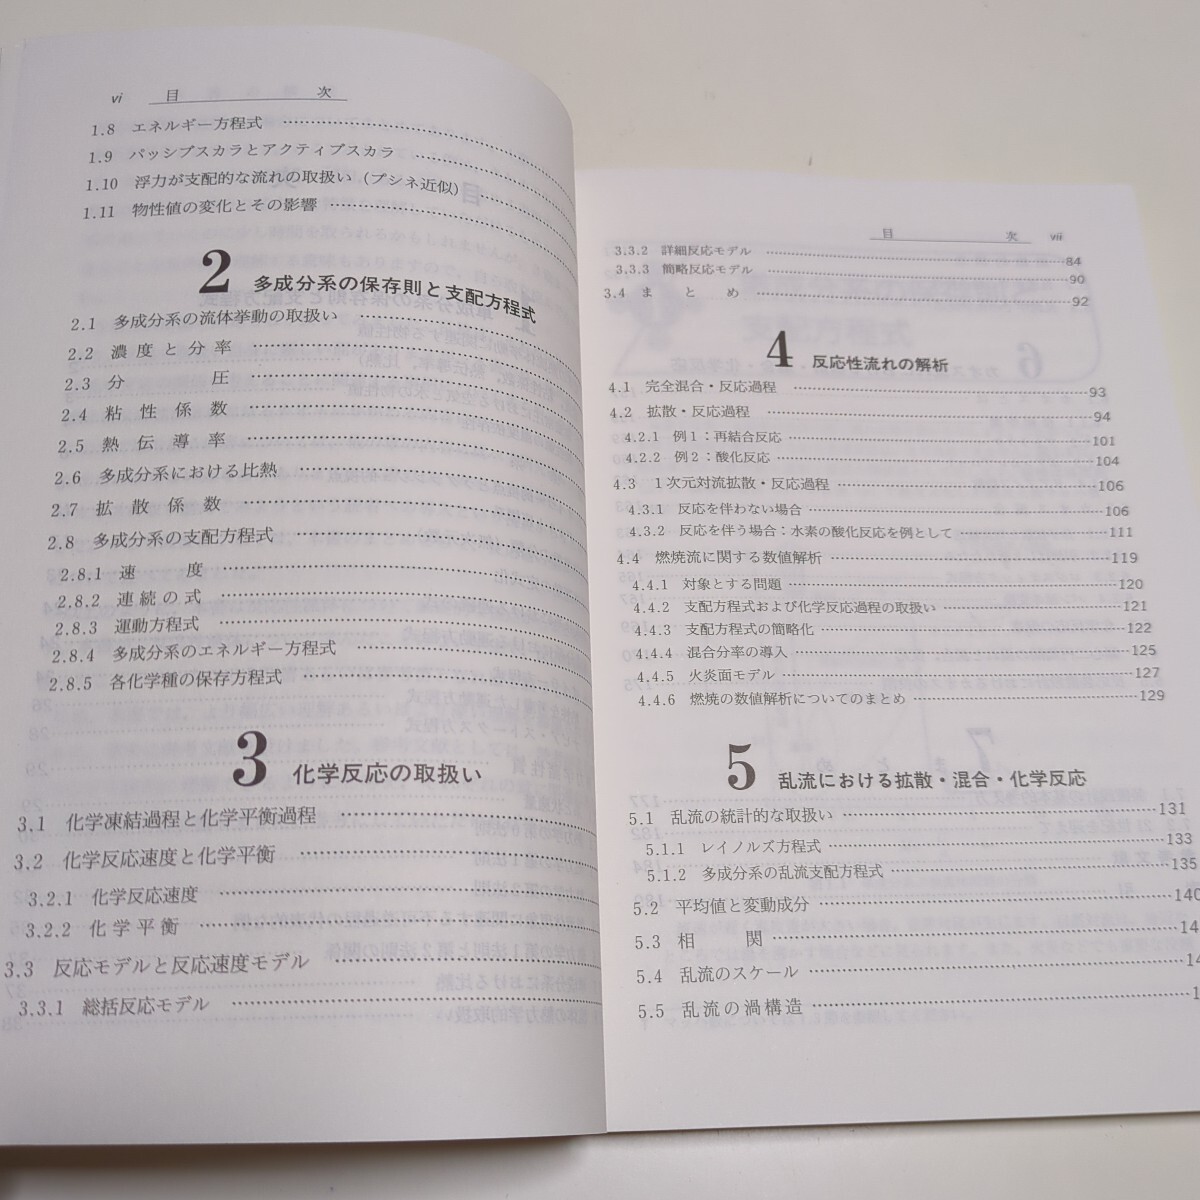 vi 目 次
1.8 エネルギー方程式
1.9 パッシブスカラとアクティブスカラ
1.10 浮力が支配的な流れの取扱い（ブシネ近似）
1.11 物性値の変化とその影響
2 多成分系の保存則と支配方程式
2.1 多成分系の流体挙動の取扱い
2.2 濃度と分率
2.3 分 圧
2.4 粘性係数
2.5 熱伝導率
2.6 多成分系における比熱
2.7 拡散係数
2.8 多成分系の支配方程式
2.8.1 速 度
2.8.2 連続の式
2.8.3 運動方程式
2.8.4 多成分系のエネルギー方程式
2.8.5 各化学種の保存方程式
3 化学反応の取扱い
3.1 化学凍結過程と化学平衡過程
3.2 化学反応速度と化学平衡
3.2.1 化学反応速度
3.2.2 化学平衡
3.3 反応モデルと反応速度モデル
3.3.1 総括反応モデル
目 次 vii
3.3.2 詳細反応モデル 84
3.3.3 簡略反応モデル 90
3.4 まとめ 92
4 反応性流れの解析
4.1 完全混合・反応過程 93
4.2 拡散・反応過程 94
4.2.1 例1：再結合反応 101
4.2.2 例2：酸化反応 104
4.3 1次元対流拡散・反応過程 106
4.3.1 反応を伴わない場合 106
4.3.2 反応を伴う場合：水素の酸化反応を例として 111
4.4 燃焼流に関する数値解析 119
4.4.1 対象とする問題 120
4.4.2 支配方程式および化学反応過程の取扱い 121
4.4.3 支配方程式の簡略化 122
4.4.4 混合分率の導入 125
4.4.5 火炎面モデル 127
4.4.6 燃焼の数値解析についてのまとめ 129
5 乱流における拡散・混合・化学反応
5.1 乱流の統計的な取扱い 131
5.1.1 レイノルズ方程式 133
5.1.2 多成分系の乱流支配方程式 135
5.2 平均値と変動成分 140
5.3 相 関 14
5.4 乱流のスケール 14
5.5 乱流の渦構造 1